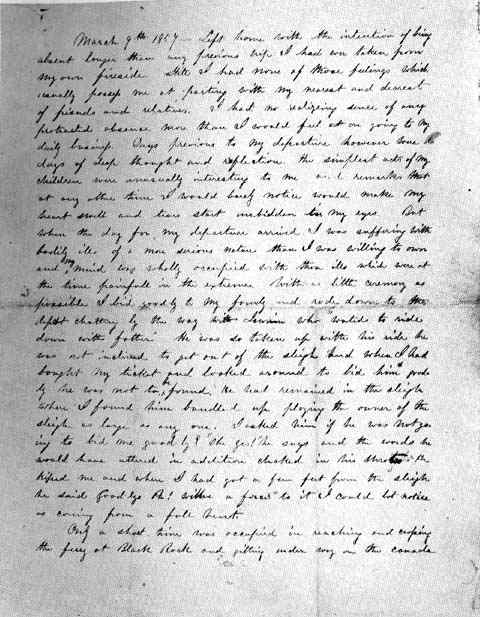 March 9th 1857 — Left home with the intention of being
absent longer than any previous trip I had ever taken from
my own fireside still I had none of those feelings which
usually possess me at parting with my nearest and dearest
of friends and relatives. I had no realizing sense of any
protracted absence more than I would feel at on going to my
daily business. Days previous to my departure however were
days of deep thought and reflection the simplest acts of my
children were unusually interesting to me and remarks that
at any other time I would barely notice would make my
heart swell and tears start unbidden in my eyes. But
when the day for my departure arrived I was suffering with
bodily ills of a more serious nature than I was willing to own
and my mind was wholly occupied with those ills which were at
the time painfull in the extreme. With as little ceremony as
possible I bid goodby to my family and rode down to the
depot chatting by the way with who wanted to ride
down with father. He was so taken up with his ride he
was not inclined to get out of the sleigh and when I had
bought my ticket and looked around to bid him good
by he was not to be found, he had remained in the sleigh
where I found him bundled up playing the owner of the
sleigh as large as any one. I asked him if he was not go
ing to bid me goodby? Oh yes! he says and the words he
would have uttered in addition choked in his throat he
kissed me and when I had got a few feet from the sleigh
he said Goodbye Pa! with a force to it I could not notice
as coming from a full heart.
Only a short time was occupied in reaching and crossing
the ferry at Black Rock and getting under way on the canada